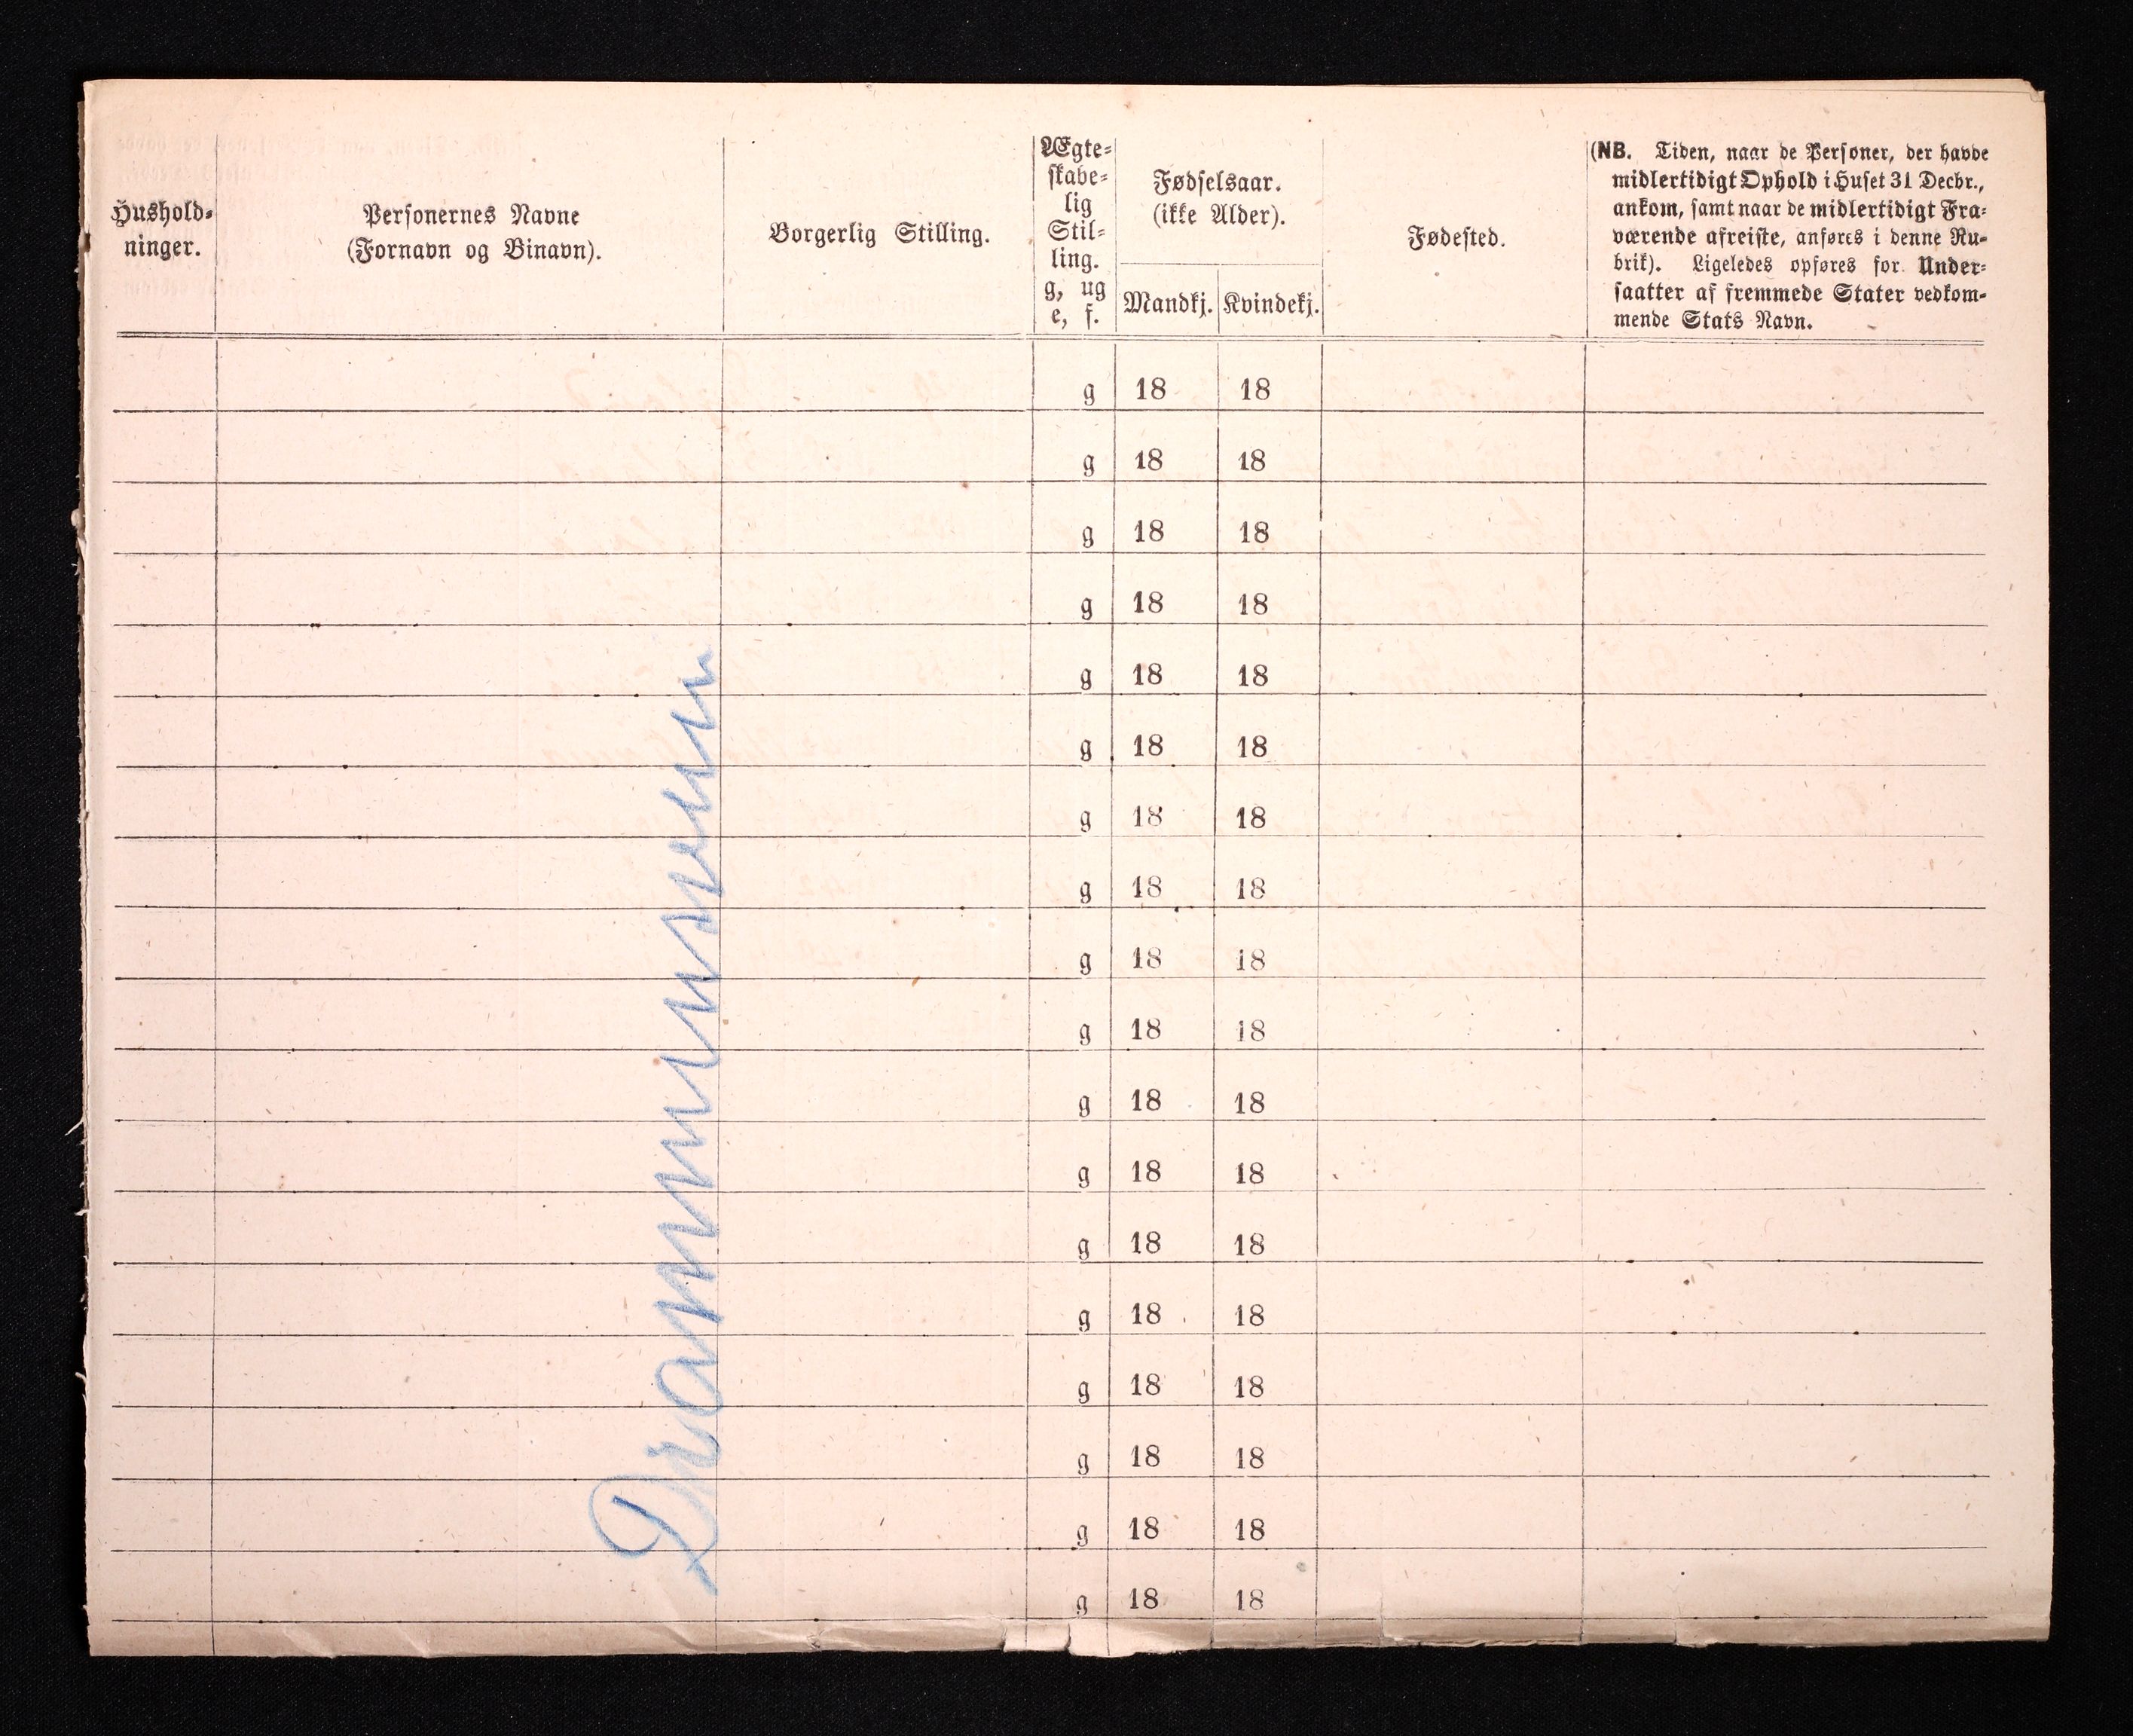 Hushold-
ninger.
Personernes Navne
(Fornavn og Binavn).
Borgerlig Stilling.
Ægte-
skabe-
lig
Stil-
ling.
g, ug
e, f.
Fødselsaar.
(ikke Alder).
Mandkj.
Kvindekj.
Fødested.
(NB. Tiden, naar de Personer, der havde
midlertidigt Ophold i Huset 31 Decbr.,
ankom, samt naar de midlertidigt Fra-
værende afreiste, anføres i denne Ru-
brik). Ligeledes opføres for Under-
saatter af fremmede Stater vedkom-
mende Stats Navn.
g 18 18
g 18 18
g 18 18
g 18 18
g 18 18
g 18 18
g 18 18
g 18 18
g 18 18
g 18 18
g 18 18
g 18 18
g 18 18
g 18 18
g 18 18
g 18 18
g 18 18
g 18 18
Drammensveien